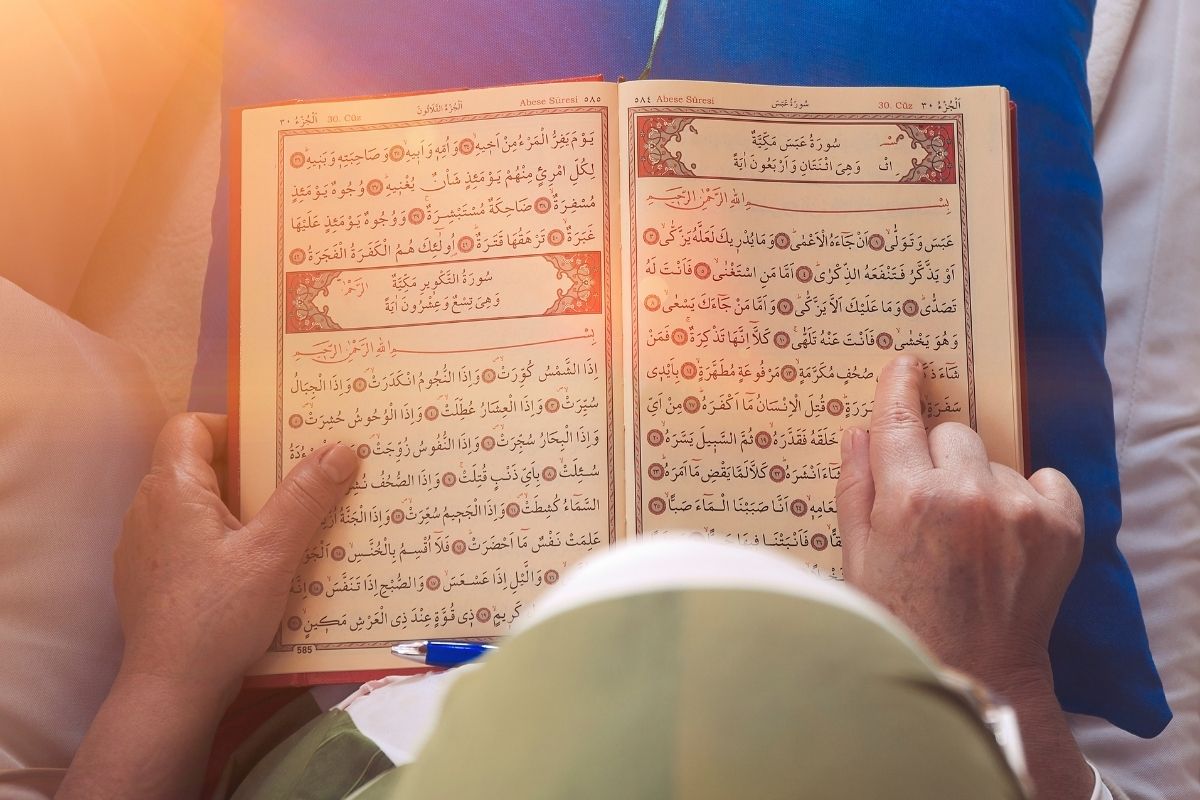 اَلْجُزْءُ ٣٠ 30. Cüz سُورَةُ عَبَسَ Abese Sûresi ٥٨٤
سُورَةُ عَبَسَ مَكِّيَّةٌ
وَهِىَ اثْنَتَانِ وَاَرْبَعُونَ اٰيَةً
بِسْمِ اللّٰهِ الرَّحْمٰنِ الرَّحِيمِ
عَبَسَ وَتَوَلّٰىۙ ١ اَنْ جَٓاءَهُ الْاَعْمٰىۜ ٢ وَمَا يُدْرِيكَ لَعَلَّهُ يَزَّكّٰىۙ ٣
اَوْ يَذَّكَّرُ فَتَنْفَعَهُ الذِّكْرٰىۜ ٤ اَمَّا مَنِ اسْتَغْنٰىۙ ٥ فَاَنْتَ لَهُ
تَصَدّٰىۜ ٦ وَمَا عَلَيْكَ اَلَّا يَزَّكّٰىۜ ٧ وَاَمَّا مَنْ جَٓاءَكَ يَسْعٰىۙ ٨
وَهُوَ يَخْشٰىۙ ٩ فَاَنْتَ عَنْهُ تَلَهّٰىۚ ١٠ كَلَّٓا اِنَّهَا تَذْكِرَةٌۚ ١١ فَمَنْ
شَٓاءَ صُحُفٍ مُكَرَّمَةٍۙ ١٣ مَرْفُوعَةٍ مُطَهَّرَةٍۙ ١٤ بِاَيْدٖى
سَفَرَةٍۙ بَرَرَةٍۜ ١٦ قُتِلَ الْاِنْسَانُ مَٓا اَكْفَرَهُۜ ١٧ مِنْ اَىِّ
خَلَقَهُ فَقَدَّرَهُۙ ١٩ ثُمَّ السَّبِيلَ يَسَّرَهُۙ ٢٠
شَٓاءَ اَنْشَرَهُۜ ٢٢ كَلَّا لَمَّا يَقْضِ مَٓا اَمَرَهُۜ ٢٣
طَعَامِهٖۙ ٢٤ اَنَّا صَبَبْنَا الْمَٓاءَ صَبًّاۙ ٢٥
شَقًّاۙ ٢٦ فَاَنْبَتْنَا فٖيهَا
٥٨٥ Abese Sûresi اَلْجُزْءُ الثَّلَاثُونَ 30. Cüz اَلْجُزْءُ ٣٠
يَوْمَ يَفِرُّ الْمَرْءُ مِنْ اَخٖيهِۙ ٣٤ وَاُمِّهٖ وَاَبٖيهِۙ ٣٥ وَصَاحِبَتِهٖ وَبَنٖيهِۜ ٣٦
لِكُلِّ امْرِئٍ مِنْهُمْ يَوْمَئِذٍ شَأْنٌ يُغْنٖيهِۜ ٣٧ وُجُوهٌ يَوْمَئِذٍ
مُسْفِرَةٌۙ ٣٨ ضَاحِكَةٌ مُسْتَبْشِرَةٌۚ ٣٩ وَوُجُوهٌ يَوْمَئِذٍ عَلَيْهَا
غَبَرَةٌۙ ٤٠ تَرْهَقُهَا قَتَرَةٌۜ ٤١ اُولٰٓئِكَ هُمُ الْكَفَرَةُ الْفَجَرَةُ ٤٢
سُورَةُ التَّكْوٖيرِ مَكِّيَّةٌ
وَهِىَ تِسْعٌ وَعِشْرُونَ اٰيَةً
بِسْمِ اللّٰهِ الرَّحْمٰنِ الرَّحِيمِ
اِذَا الشَّمْسُ كُوِّرَتْۙ ١ وَاِذَا النُّجُومُ انْكَدَرَتْۙ ٢ وَاِذَا الْجِبَالُ
سُيِّرَتْۙ ٣ وَاِذَا الْعِشَارُ عُطِّلَتْۙ ٤ وَاِذَا الْوُحُوشُ حُشِرَتْۙ ٥
وَاِذَا الْبِحَارُ سُجِّرَتْۙ ٦ وَاِذَا النُّفُوسُ زُوِّجَتْۙ ٧
سُئِلَتْۙ ٨ بِاَىِّ ذَنْبٍ قُتِلَتْۚ ٩ وَاِذَا الصُّحُفُ
السَّمَٓاءُ كُشِطَتْۙ ١١ وَاِذَا الْجَحٖيمُ سُعِّرَتْۙ ١٢ وَاِذَا الْجَنَّةُ
عَلِمَتْ نَفْسٌ مَٓا اَحْضَرَتْۜ ١٤ فَلَٓا اُقْسِمُ بِالْخُنَّسِۙ ١٥
وَالَّيْلِ اِذَا عَسْعَسَۙ ١٧ وَالصُّبْحِ اِذَا تَنَفَّسَۙ ١٨ اِنَّهُ
كَرٖيمٍۙ ١٩ ذٖى قُوَّةٍ عِنْدَ ذِى الْعَرْشِ مَكٖينٍۙ ٢٠
585